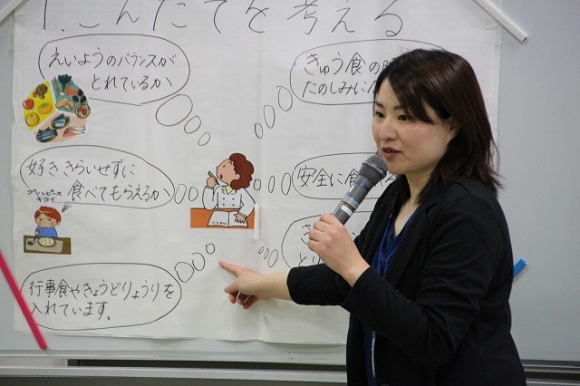 1.こんだてを考える
えいようのバランスが
とれているか
きゅう食の
たのしみに
好ききらいせずに
食べてもらえるか
グリンピース
キライ
安全に食
行事食やきょうどりょうりを
入れています。